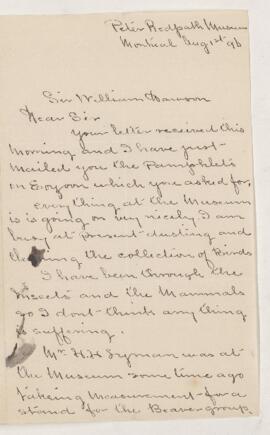 Peter Redpath Museum
Montreal Aug 1st 96
Sir William Dawson
Dear Sir
Your letter received this
morning and I have just
mailed you the Pamphlets
on Eozoon which you asked for,
every thing at the Museum
is is going on very nicely I am
busy at present dusting and
cleaning the collection of Birds
I have been through the
Insects and the Mammals
so I dont think any thing
is suffering.
Mr H. H. Lyman was at
the Museum some time ago
taking measurement for a
stand for the Beaver group